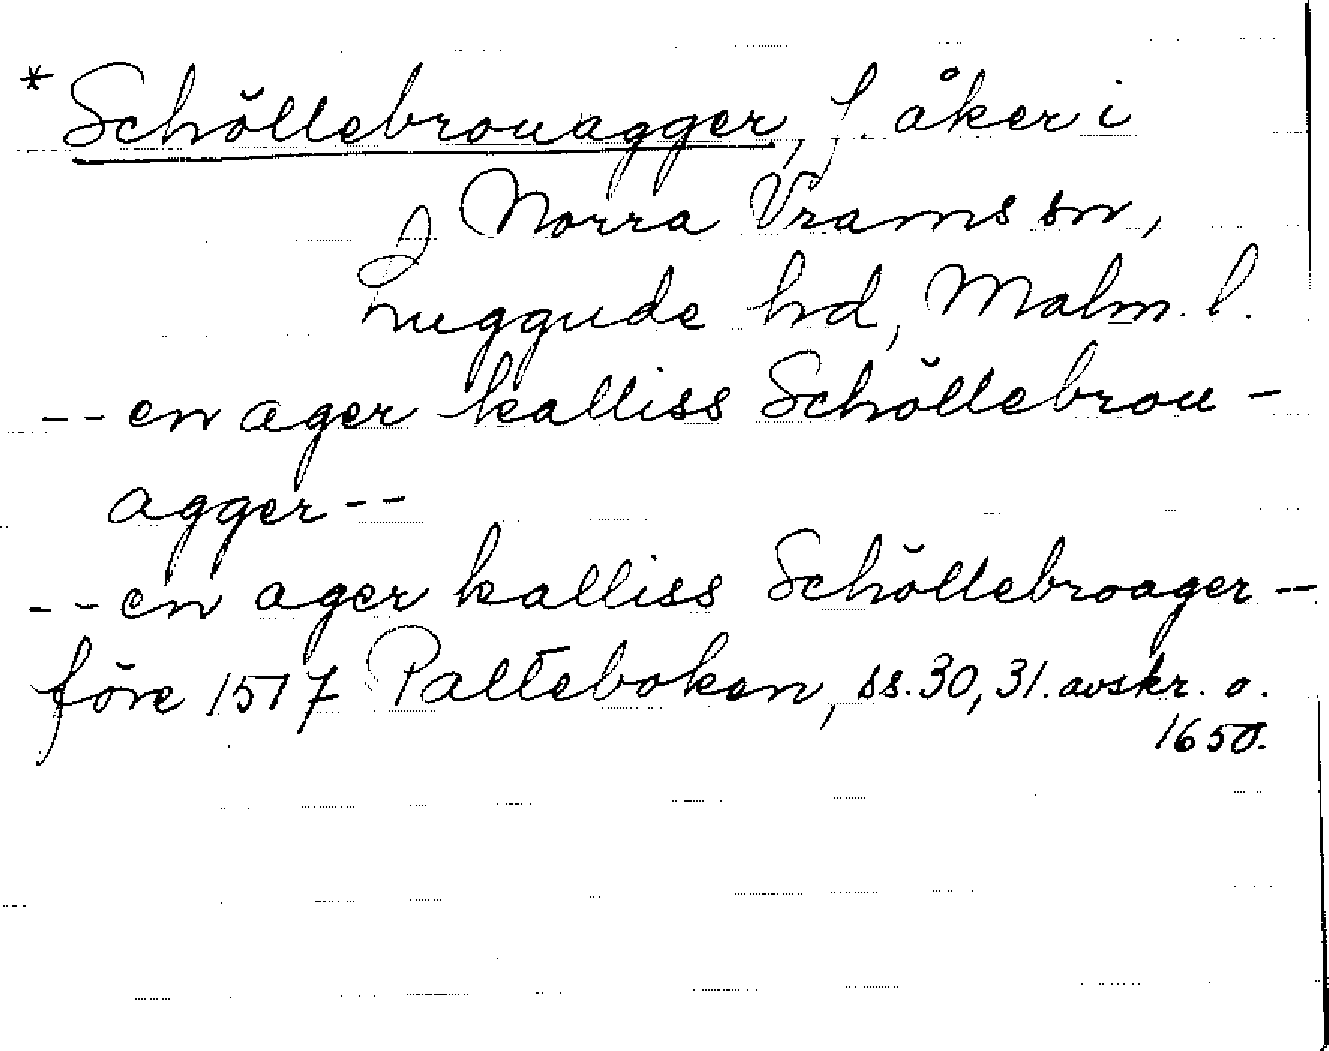 * Schöllebrouagger, f. åker i
Norra Vrams sn,
Luggude hd, Malm. l.
-- en ager kalliss Schöllebrou-
agger --
-- en ager kalliss Schöllebroager --
före 1517 Palteboken, ss. 30, 31. avskr. o.
1650.